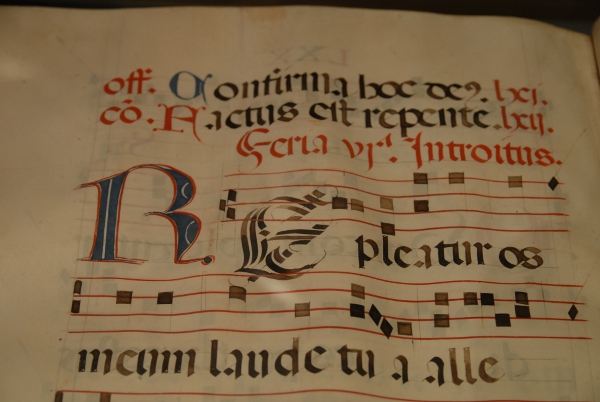 off. Confirma hoc de9. lxj.
cō. Factus est repente. lxij.
Feria vjª. Introitus.
R. Epleatur os
meum laude tu a alle